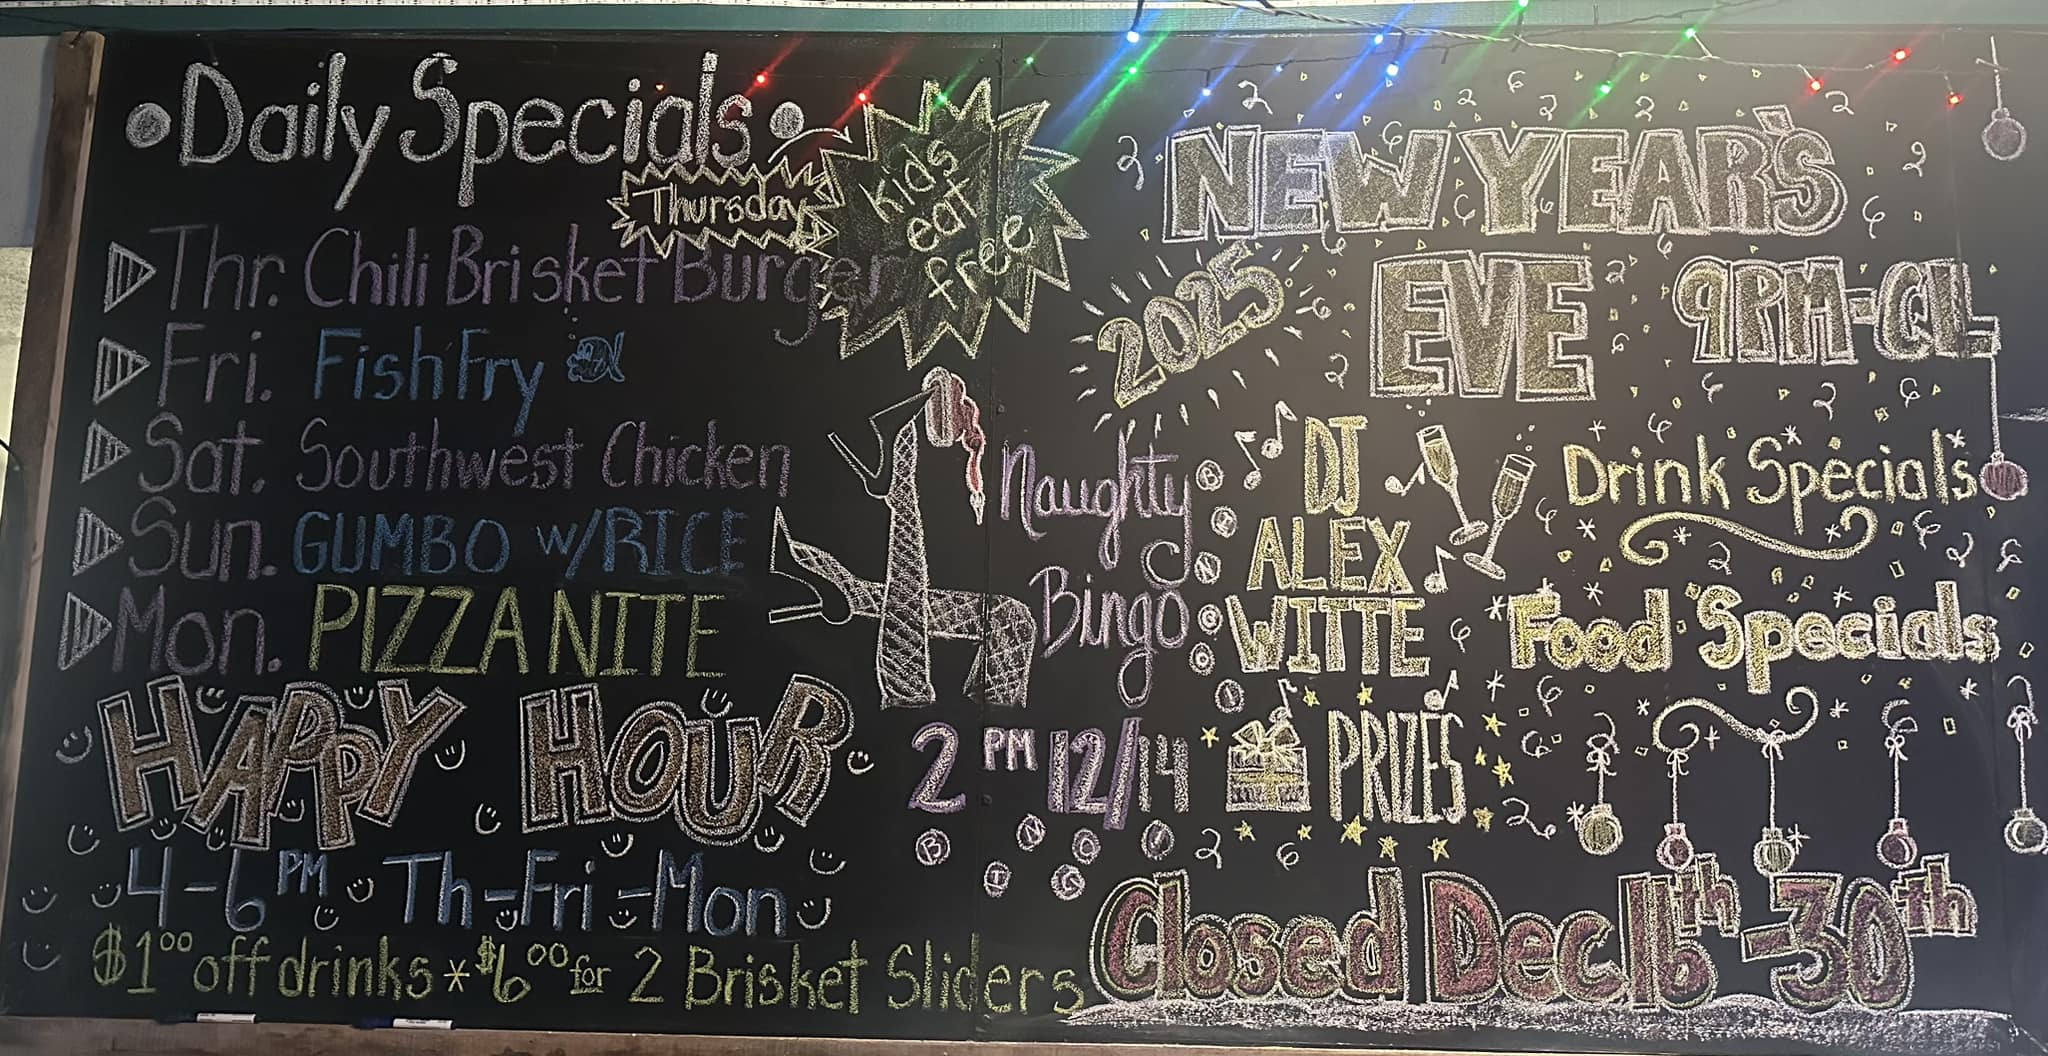 Daily Specials
Thursday
Kids
eat
free
Thr. Chili Brisket Burger
Fri. Fish Fry
Sat. Southwest Chicken
Sun. GUMBO w/RICE
Mon. PIZZA NITE
HAPPY HOUR
4-6 PM Th-Fri-Mon
$1.00 off drinks * $6.00 for 2 Brisket Sliders
Naughty
Bingo
2 PM 12/14
BINGO
BINGO
NEW YEAR'S
EVE 9PM-CL
2025
DJ
ALEX
WITTE
PRIZES
Drink Specials
Food Specials
Closed Dec 16th-30th